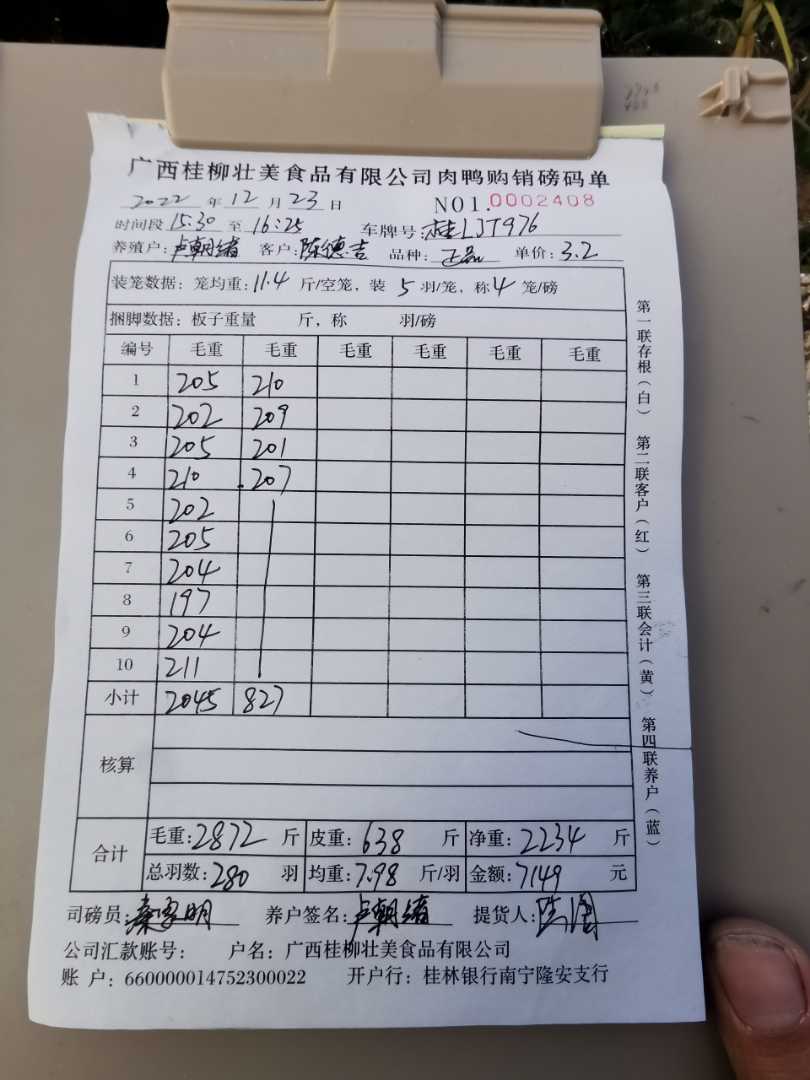 广西桂柳壮美食品有限公司肉鸭购销磅码单
2022 年 12 月 23 日 NO1.0002408
时间段 15:30 至 16:25 车牌号: 桂LJT976
养殖户: 卢朝绪 客户: 陈德吉 品种: 正品 单价: 3.2
装笼数据: 笼均重: 11.4 斤/空笼, 装 5 羽/笼, 称 4 笼/磅
捆脚数据: 板子重量 斤, 称 羽/磅
编号 毛重 毛重 毛重 毛重 毛重 毛重
1 205 210
2 202 209
3 205 201
4 210 207
5 202
6 205
7 204
8 197
9 204
10 211
小计 2045 827
核算
合计
毛重: 2872 斤 皮重: 638 斤 净重: 2234 斤
总羽数: 280 羽 均重: 7.98 斤/羽 金额: 7149 元
司磅员: 养户签名: 卢朝绪 提货人:
公司汇款账号: 户名: 广西桂柳壮美食品有限公司
账 户: 660000014752300022 开户行: 桂林银行南宁隆安支行
第一联存根(白) 第二联客户(红) 第三联会计(黄) 第四联养户(蓝)